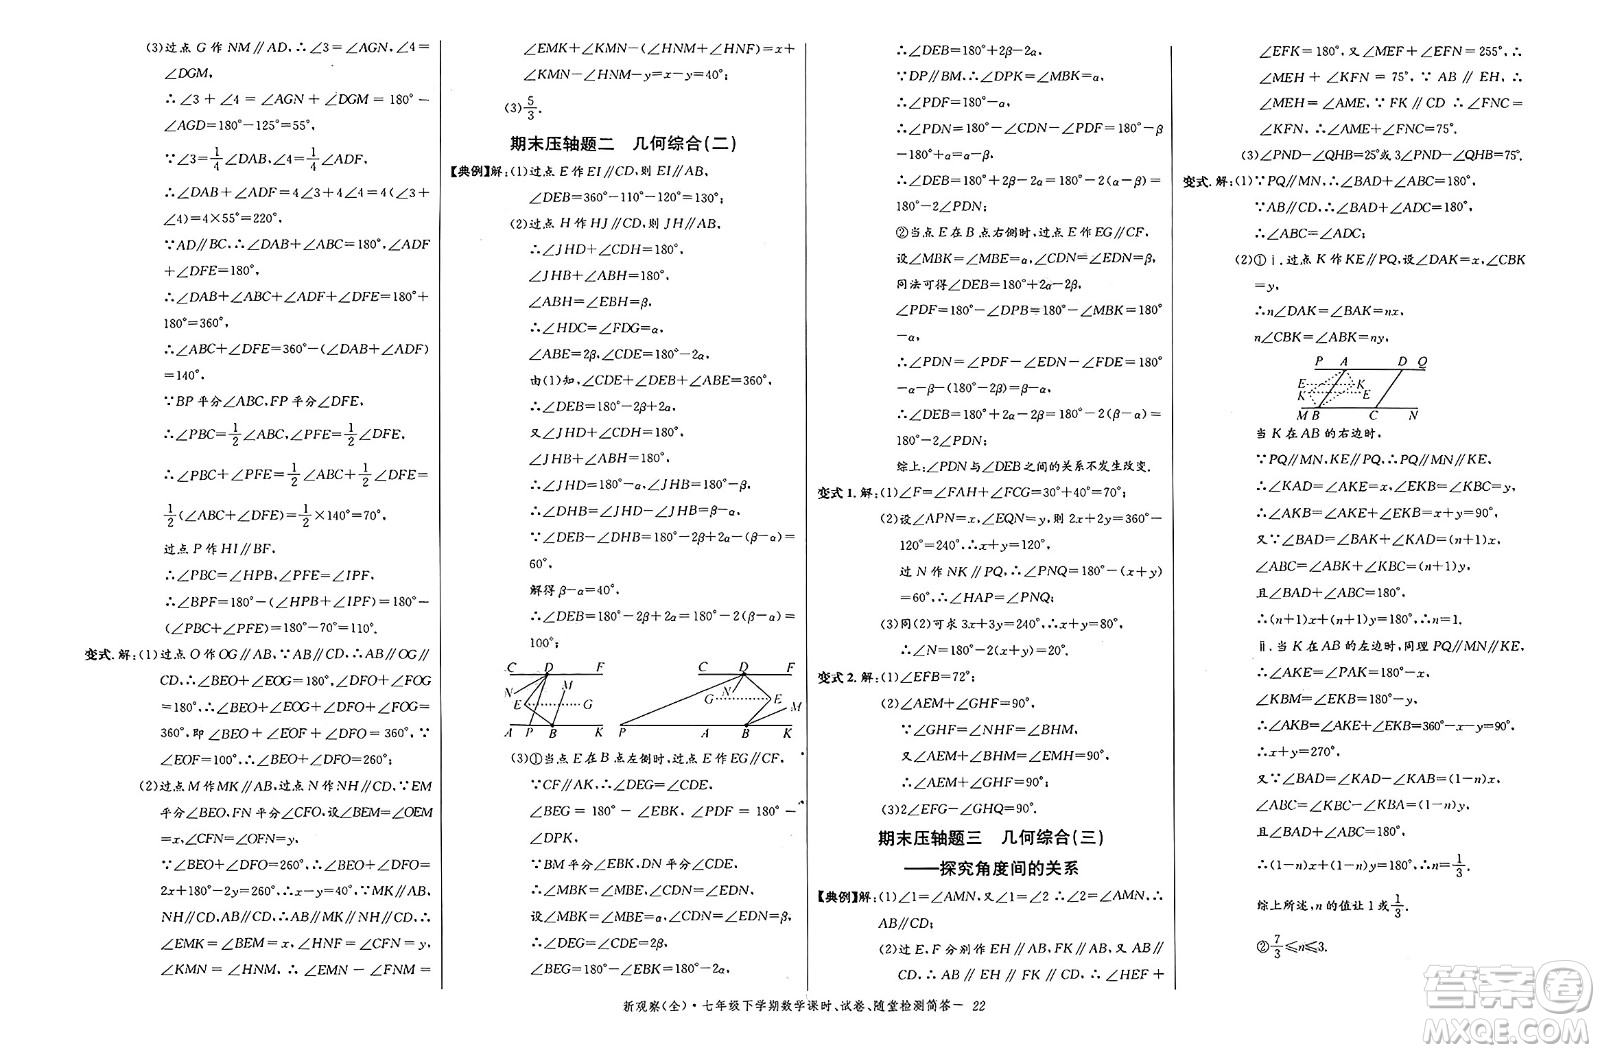 (3)过点 G 作 NM∥AD,∴∠3=∠AGN,∠4=
∠DGM,
∴∠3+∠4=∠AGN+∠DGM=180°-
∠AGD=180°-125°=55°,
∵∠3=1/4∠DAB,∠4=1/4∠ADF,
∴∠DAB+∠ADF=4∠3+4∠4=4(∠3+
∠4)=4×55°=220°,
∵AD∥BC,∴∠DAB+∠ABC=180°,∠ADF
+∠DFE=180°,
∴∠DAB+∠ABC+∠ADF+∠DFE=180°+
180°=360°,
∴∠ABC+∠DFE=360°-(∠DAB+∠ADF)
=140°,
∵BP平分∠ABC,FP平分∠DFE,
∴∠PBC=1/2∠ABC,∠PFE=1/2∠DFE,
∴∠PBC+∠PFE=1/2∠ABC+1/2∠DFE=
1/2(∠ABC+∠DFE)=1/2×140°=70°,
过点 P 作 HI∥BF,
∴∠PBC=∠HPB,∠PFE=∠IPF,
∴∠BPF=180°-(∠HPB+∠IPF)=180°-
(∠PBC+∠PFE)=180°-70°=110°.
变式.解:(1)过点 O 作 OG∥AB,∵AB∥CD,∴AB∥OG∥
CD,∴∠BEO+∠EOG=180°,∠DFO+∠FOG
=180°,∴∠BEO+∠EOG+∠DFO+∠FOG=
360°,即∠BEO+∠EOF+∠DFO=360°,∵
∠EOF=100°,∴∠BEO+∠DFO=260°;
(2)过点 M 作 MK∥AB,过点 N 作 NH∥CD,∵EM
平分∠BEO,FN平分∠CFO,设∠BEM=∠OEM
=x,∠CFN=∠OFN=y,
∵∠BEO+∠DFO=260°,∴∠BEO+∠DFO=
2x+180°-2y=260°,∴x-y=40°,∵MK∥AB,
NH∥CD,AB∥CD,∴AB∥MK∥NH∥CD,∴
∠EMK=∠BEM=x,∠HNF=∠CFN=y,
∠KMN=∠HNM,∴∠EMN-∠FNM=
∠EMK+∠KMN-(∠HNM+∠HNF)=x+
∠KMN-∠HNM-y=x-y=40°;
(3)5/3.
期末压轴题二 几何综合(二)
【典例】解:(1)过点 E 作 EI∥CD,则 EI∥AB,
∠DEB=360°-110°-120°=130°;
(2)过点 H 作 HJ∥CD,则 JH∥AB,
∴∠JHD+∠CDH=180°,
∠JHB+∠ABH=180°,
∠ABH=∠EBH=β,
∴∠HDC=∠FDG=α,
∠ABE=2β,∠CDE=180°-2α,
由(1)知,∠CDE+∠DEB+∠ABE=360°,
∴∠DEB=180°-2β+2α,
又∠JHD+∠CDH=180°,
∠JHB+∠ABH=180°,
∴∠JHD=180°-α,∠JHB=180°-β,
∴∠DHB=∠JHD-∠JHB=β-α,
∵∠DEB-∠DHB=180°-2β+2α-(β-α)=
60°,
解得β-α=40°,
∴∠DEB=180°-2β+2α=180°-2(β-α)=
100°;
C D F
N M
E G
A P B K
C D F
N
G E M
P A B K
(3)①当点 E 在 B 点左侧时,过点 E 作 EG∥CF,
∵CF∥AK,∴∠DEG=∠CDE,
∠BEG=180°-∠EBK,∠PDF=180°-
∠DPK,
∵BM平分∠EBK,DN平分∠CDE,
∴∠MBK=∠MBE,∠CDN=∠EDN,
设∠MBK=∠MBE=α,∠CDN=∠EDN=β,
∴∠DEG=∠CDE=2β,
∠BEG=180°-∠EBK=180°-2α,
∴∠DEB=180°+2β-2α,
∵DP∥BM,∴∠DPK=∠MBK=α,
∴∠PDF=180°-α,
∴∠PDN=180°-∠CDN-∠PDF=180°-β
-180°+α=α-β,
∴∠DEB=180°+2β-2α=180°-2(α-β)=
180°-2∠PDN;
②当点 E 在 B 点右侧时,过点 E 作 EG∥CF,
设∠MBK=∠MBE=α,∠CDN=∠EDN=β,
同法可得∠DEB=180°+2α-2β,
∠PDF=180°-∠DPB=180°-∠MBK=180°
-α,
∴∠PDN=∠PDF-∠EDN-∠FDE=180°
-α-β-(180°-2β)=β-α,
∴∠DEB=180°+2α-2β=180°-2(β-α)=
180°-2∠PDN;
综上:∠PDN与∠DEB之间的关系不发生改变.
变式 1.解:(1)∠F=∠FAH+∠FCG=30°+40°=70°;
(2)设∠APN=x,∠EQN=y,则 2x+2y=360°-
120°=240°,∴x+y=120°,
过 N 作 NK∥PQ,∴∠PNQ=180°-(x+y)
=60°,∴∠HAP=∠PNQ;
(3)同(2)可求 3x+3y=240°,∴x+y=80°,
∴∠N=180°-2(x+y)=20°.
变式 2.解:(1)∠EFB=72°;
(2)∠AEM+∠GHF=90°,
∵∠GHF=∠NHF=∠BHM,
又∠AEM+∠BHM=∠EMH=90°,
∴∠AEM+∠GHF=90°;
(3)2∠EFG-∠GHQ=90°.
期末压轴题三 几何综合(三)
——探究角度间的关系
【典例】解:(1)∠1=∠AMN,∵∠1=∠2 ∴∠2=∠AMN,∴
AB∥CD;
(2)过 E、F 分别作 EH∥AB,FK∥AB,又 AB∥
CD,∴AB∥EH∥FK∥CD,∴∠HEF+
∠EFK=180°,又∠MEF+∠EFN=255°,∴
∠MEH+∠KFN=75°,∵AB∥EH,∴
∠MEH=∠AME,∵FK∥CD ∴∠FNC=
∠KFN,∴∠AME+∠FNC=75°.
(3)∠PND-∠QHB=25°或 3∠PND-∠QHB=75°.
变式.解:(1)∵PQ∥MN,∴∠BAD+∠ABC=180°,
∵AB∥CD,∴∠BAD+∠ADC=180°,
∴∠ABC=∠ADC;
(2)①ⅰ.过点 K 作 KE∥PQ,设∠DAK=x,∠CBK
=y,
∴n∠DAK=∠BAK=nx,
n∠CBK=∠ABK=ny,
P A D Q
E K
K E
M B C N
当 K 在 AB 的右边时,
∵PQ∥MN,KE∥PQ,∴PQ∥MN∥KE,
∴∠KAD=∠AKE=x,∠KBC=∠EKB=y,
∴∠AKB=∠AKE+∠EKB=x+y=90°,
又∵∠BAD=∠BAK+∠DAK=(n+1)x,
∠ABC=∠ABK+∠KBC=(n+1)y,
且∠BAD+∠ABC=180°,
∴(n+1)x+(n+1)y=180°,∴n=1.
ⅱ.当 K 在 AB 的左边时,同理 PQ∥MN∥KE,
∴∠AKE=∠PAK=180°-x,
∠KBM=∠EKB=180°-y,
∴∠AKB=∠AKE+∠EKB=360°-x-y=90°,
∴x+y=270°,
又∵∠BAD=∠KAD-∠KAB=(1-n)x,
∠ABC=∠KBC-∠KBA=(1-n)y,
且∠BAD+∠ABC=180°,
∴(1-n)x+(1-n)y=180°,∴n=1/3.
综上所述,n 的值让 1 或1/3.
②7/3≤n≤3.
新观察(全)·七年级下学期数学课时、试卷、随堂检测简答— 22
答案圈
MXQE.COM